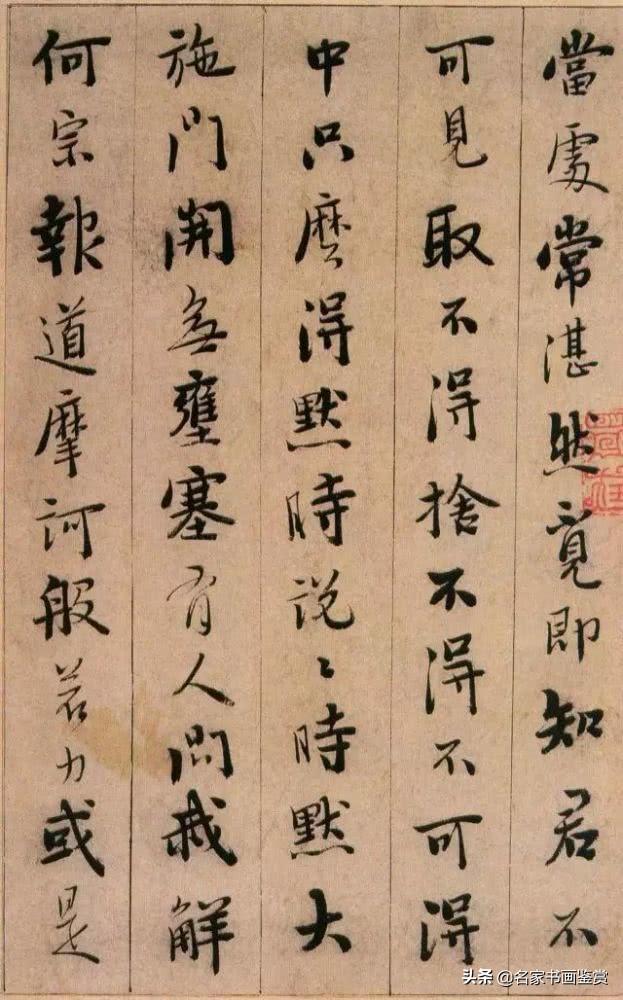 當處常湛然覓即知君不
可見取不得捨不得不可得
中只麽得默時説〻時默大
施門開無壅塞有人問我解
何宗報道摩訶般若力或是
头条 @名家书画鉴赏